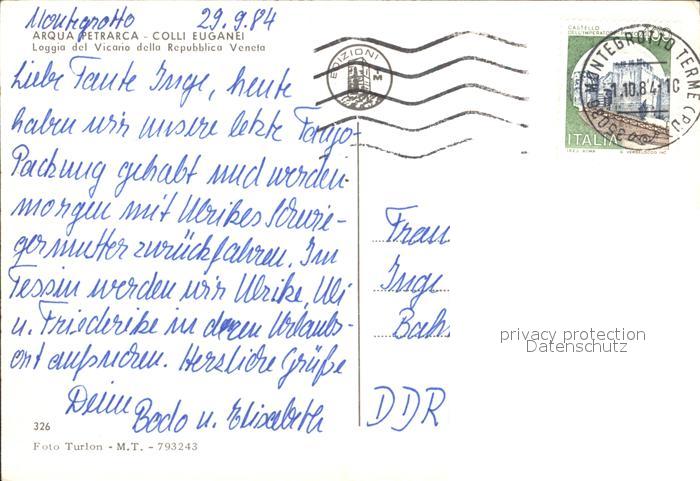 Montegrotto 29.9.84
ARQUA PETRARCA - COLLI EUGANEI
Loggia del Vicario della Repubblica Veneta
Liebe Tante Inge, heute
haben wir unsere letzte Fango-
Packung gehabt und werden
morgen mit Ulrikes Schwie-
germutter zurückfahren. Im
Tessin werden wir Ulrike, Uli
u. Friederike in deren Urlaubs-
ort aufsuchen. Herzliche Grüße
Deine Bodo u. Elisabeth
326
Foto Turlon - M.T. - 793243
EDIZIONI
M
CASTELLO
DELL'IMPERATORE
ITALIA
MONTEGROTTO TERME (PD)
1.10.84
35036
Frau
Inge
DDR
privacy protection
Datenschutz